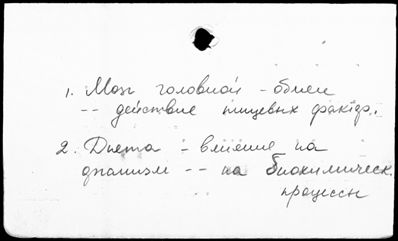 1. Мозг головной - обмен
-- действие пищевых фактор.
2. Диета - влияние на
организм -- на биохимическ.
процессы